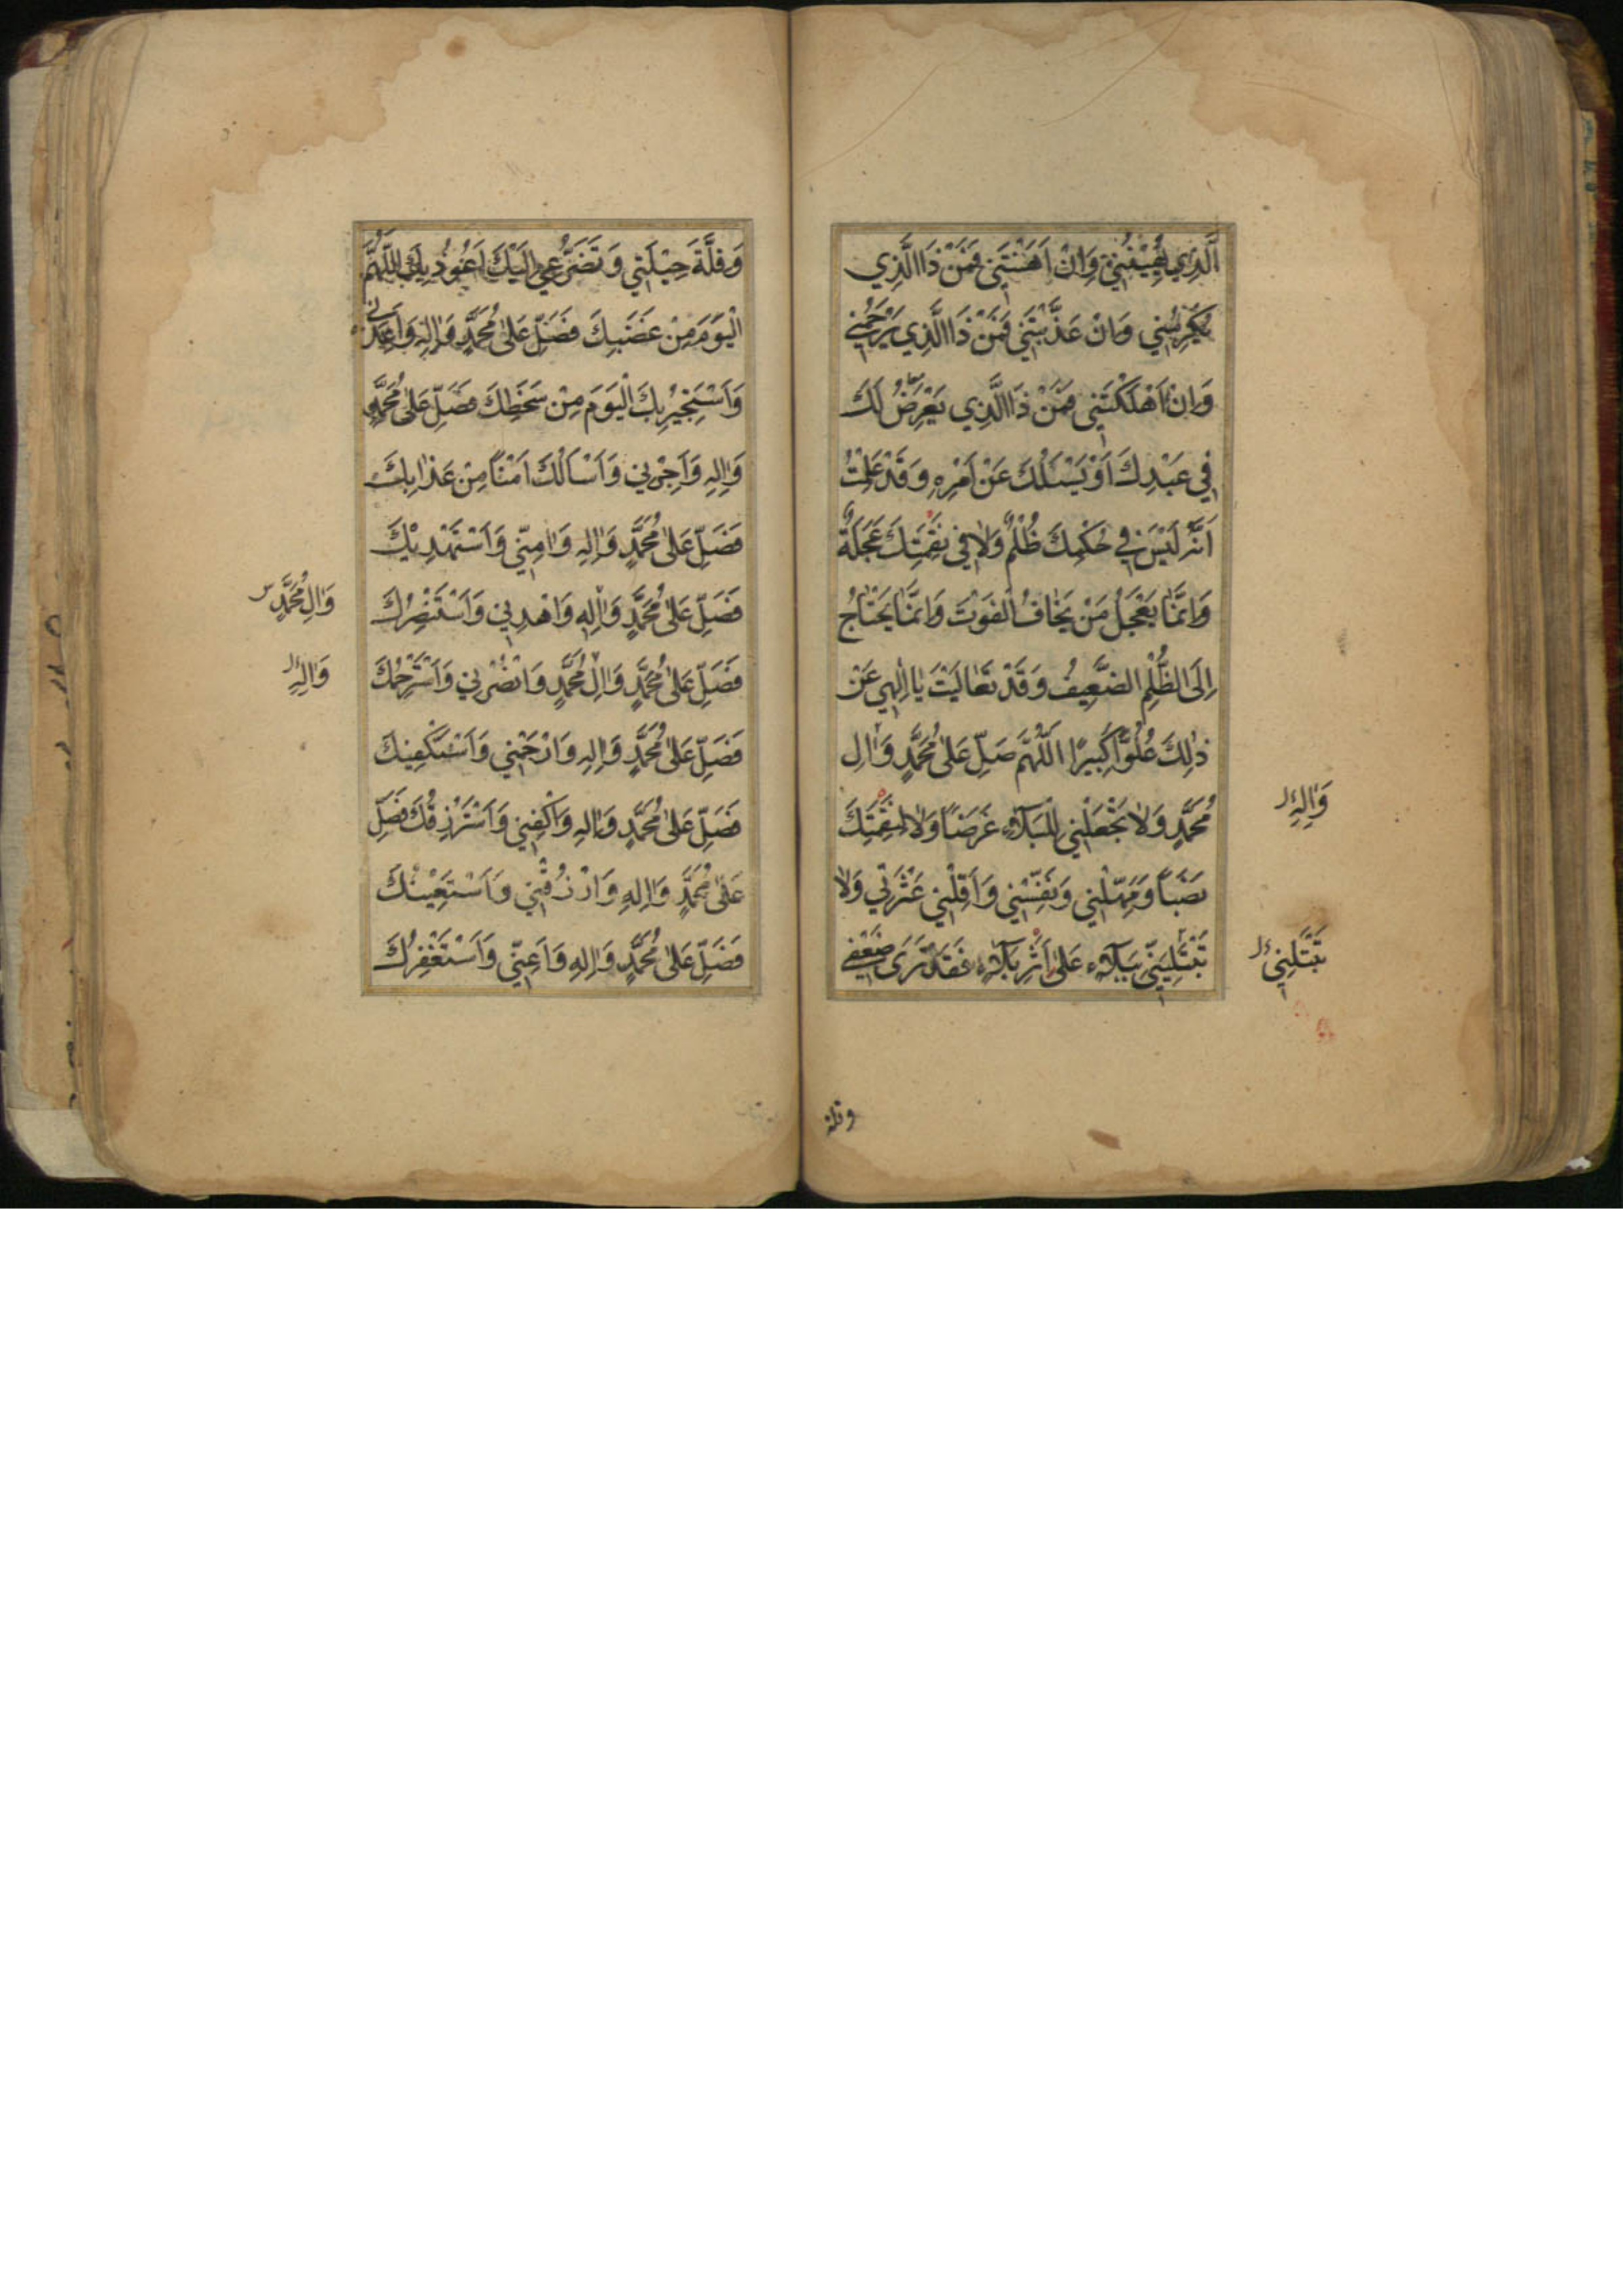 الَّذِي يُهِينُنِي وَاِنْ اَهَنْتَنِي فَمَنْ ذَا الَّذِي
يُكْرِمُنِي وَاِنْ عَذَّبْتَنِي فَمَنْ ذَا الَّذِي يَرْحَمُنِي
وَاِنْ اَهْلَكْتَنِي فَمَنْ ذَا الَّذِي يَعْرِضُ لَكَ
فِي عَبْدِكَ اَوْ يَسْئَلُكَ عَنْ اَمْرِهِ وَقَدْ عَلِمْتُ
اَنَّهُ لَيْسَ فِي حُكْمِكَ ظُلْمٌ وَلَا فِي نَقِمَتِكَ عَجَلَةٌ
وَاِنَّمَا يَعْجَلُ مَنْ يَخَافُ الْفَوْتَ وَاِنَّمَا يَحْتَاجُ
اِلَى الظُّلْمِ الضَّعِيفُ وَقَدْ تَعَالَيْتَ يَا اِلٰهِي عَنْ
ذٰلِكَ عُلُوًّا كَبِيرًا اَللّٰهُمَّ صَلِّ عَلٰى مُحَمَّدٍ وَاٰلِ
وَاٰلِهِ
مُحَمَّدٍ وَلَا تَجْعَلْنِي لِلْبَلَاءِ غَرَضًا وَلَا لِنَقِمَتِكَ
نَصَبًا وَمَهِّلْنِي وَنَفِّسْنِي وَاَقِلْنِي عَثْرَتِي وَلَا
تَبْتَلِيَنِّي بِبَلَاءٍ عَلٰى اَثَرِ بَلَاءٍ فَقَدْ تَرٰى ضَعْفِي
تَبْتَلِنِي
وقلة
وَقِلَّةَ حِيْلَتِي وَتَضَرُّعِي اِلَيْكَ اَعُوذُ بِكَ اللّٰهُمَّ
الْيَوْمَ مِنْ غَضَبِكَ فَصَلِّ عَلٰى مُحَمَّدٍ وَاٰلِهِ وَاَعِذْنِي
وَاَسْتَجِيْرُ بِكَ الْيَوْمَ مِنْ سَخَطِكَ فَصَلِّ عَلٰى مُحَمَّدٍ
وَاٰلِهِ وَاَجِرْنِي وَاَسْاَلُكَ اَمْنًا مِنْ عَذَابِكَ
فَصَلِّ عَلٰى مُحَمَّدٍ وَاٰلِهِ وَاٰمِنِّي وَاَسْتَهْدِيْكَ
فَصَلِّ عَلٰى مُحَمَّدٍ وَاٰلِهِ وَاهْدِنِي وَاَسْتَنْصِرُكَ
وَاٰلِ مُحَمَّدٍ
فَصَلِّ عَلٰى مُحَمَّدٍ وَاٰلِ مُحَمَّدٍ وَانْصُرْنِي وَاَسْتَرْحِمُكَ
وَاٰلِهِ
فَصَلِّ عَلٰى مُحَمَّدٍ وَاٰلِهِ وَارْحَمْنِي وَاَسْتَكْفِيْكَ
فَصَلِّ عَلٰى مُحَمَّدٍ وَاٰلِهِ وَاكْفِنِي وَاَسْتَرْزِقُكَ فَصَلِّ
عَلٰى مُحَمَّدٍ وَاٰلِهِ وَارْزُقْنِي وَاَسْتَعِيْنُكَ
فَصَلِّ عَلٰى مُحَمَّدٍ وَاٰلِهِ وَاَعِنِّي وَاَسْتَغْفِرُكَ